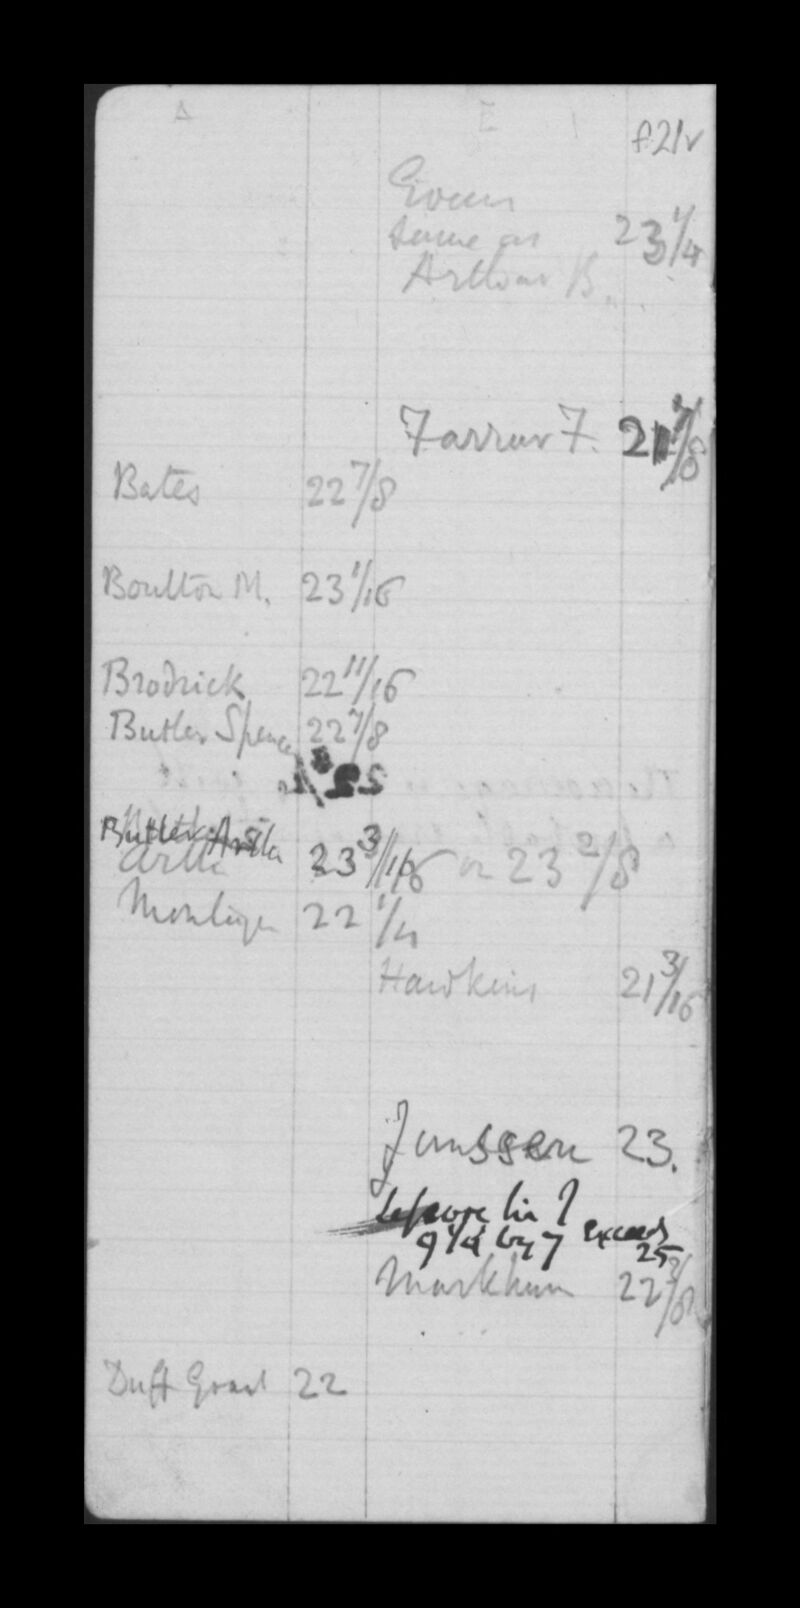 A E
f21v
Evans
same as 23 1/4
Arthur B.
Farrar F. 21 7/8
Bates 22 7/8
Boulton M. 23 1/16
Brodrick 22 11/16
Butler Spencer 22 7/8
Butler Arthur
23 3/16 or 23 2/8
22 1/4
Hawkins 21 3/16
Janssen 23.
9 1/4 by 7 exceeds
25
Markham 22
Duff Grant 22